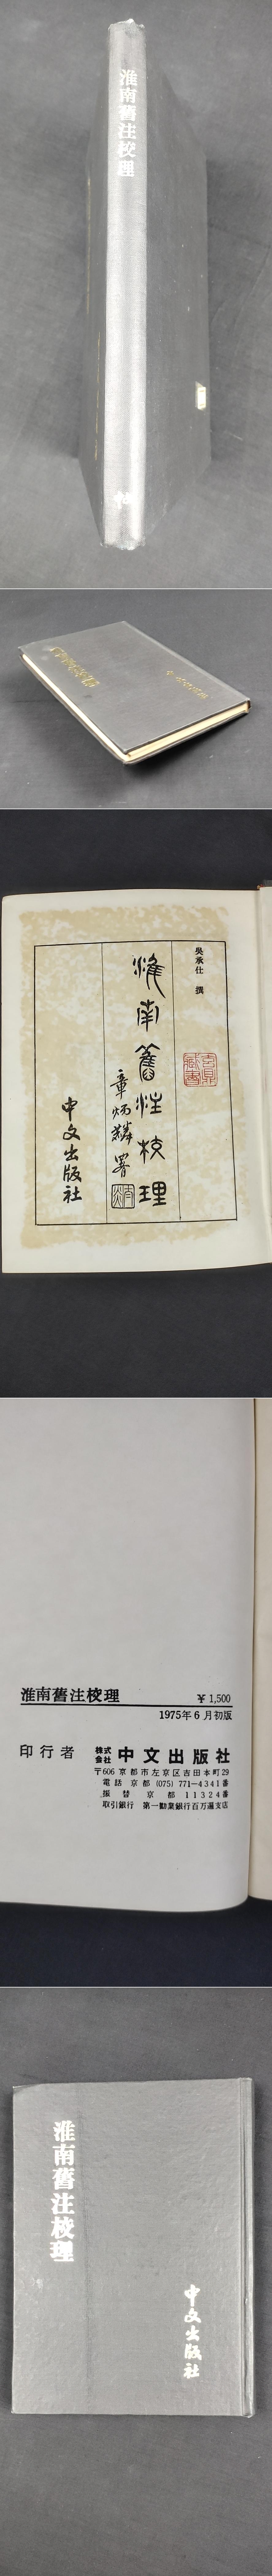 淮南舊注校理
吳承仕 撰
淮南舊注校理
章炳麟署
中文出版社
淮南舊注校理 ￥1,500
1975年6月初版
印行者 株式会社 中文出版社
〒606 京都市左京区吉田本町29
電話 京都 (075) 771―4341番
振替 京都 11324番
取引銀行 第一勧業銀行百万遍支店
淮南舊注校理
中文出版社